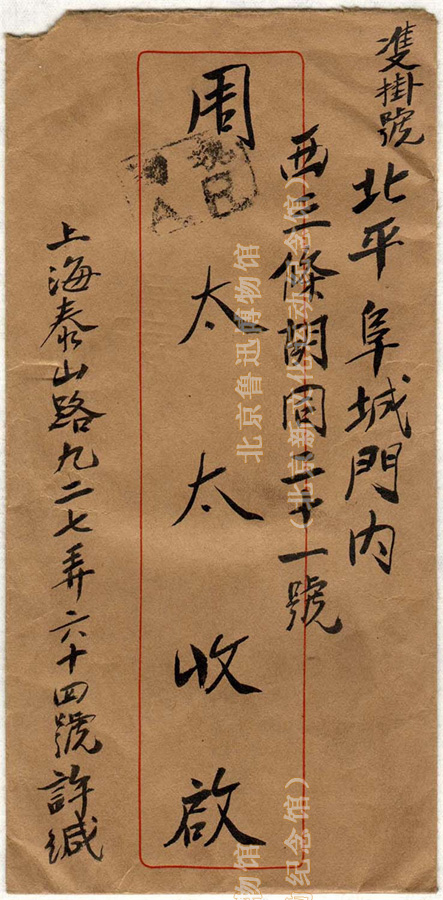 雙掛號
北平阜城門内
西三條胡同二十一號
周太太收啟
上海泰山路九二七弄六十四號許緘
北京鲁迅博物馆
(北京新文化运动纪念馆)
博物馆
纪念馆)